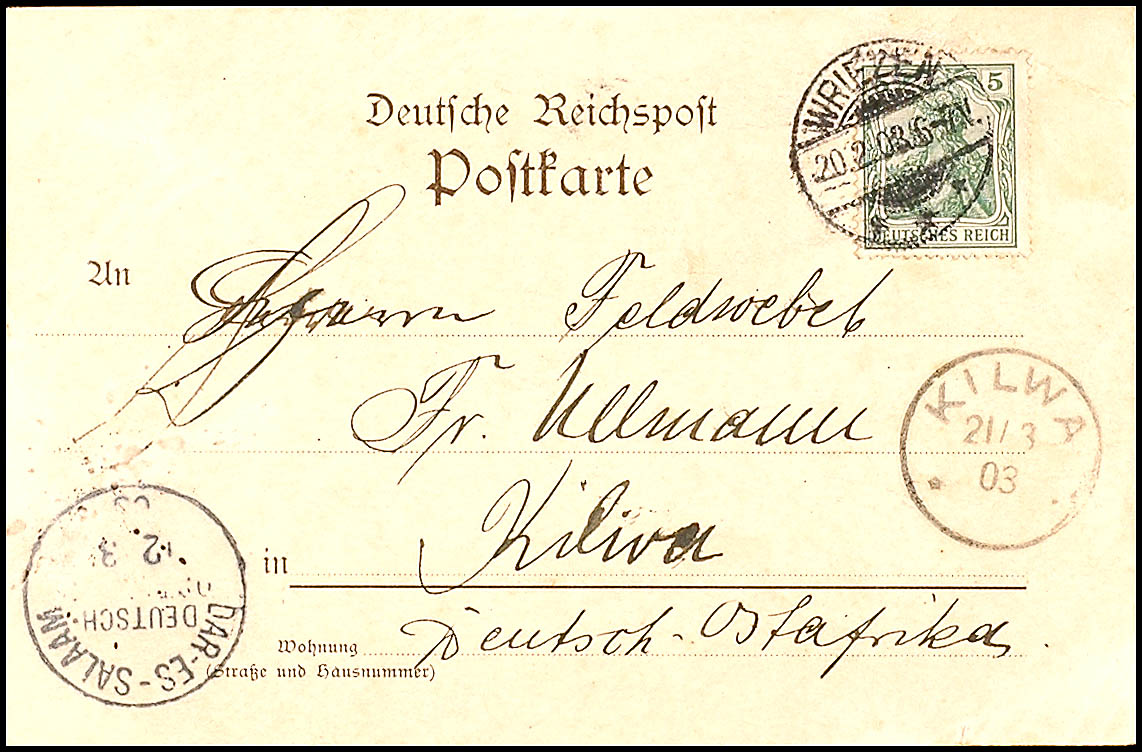 Deutsche Reichspost
Postkarte
WRIEZEN
20.2.03.6-7N.
5
DEUTSCHES REICH
An
Herrn Feldwebel
Fr. Ullmann
KILWA
21/3
03
in
Kilwa
DAR-ES-SALAAM
DEUTSCH-
Wohnung
Deutsch-Ostafrika.
(Straße und Hausnummer)